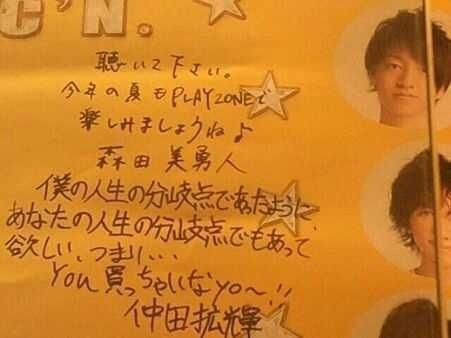 C'N.
聴いて下さい。
今年の夏もPLAYZONEで
楽しみましょうね♪
森田美勇人
僕の人生の分岐点であたように、
あなたの人生の分岐点でもあって
欲しい、つまり、、、
You買っちゃいなyo〜!!
仲田拡輝